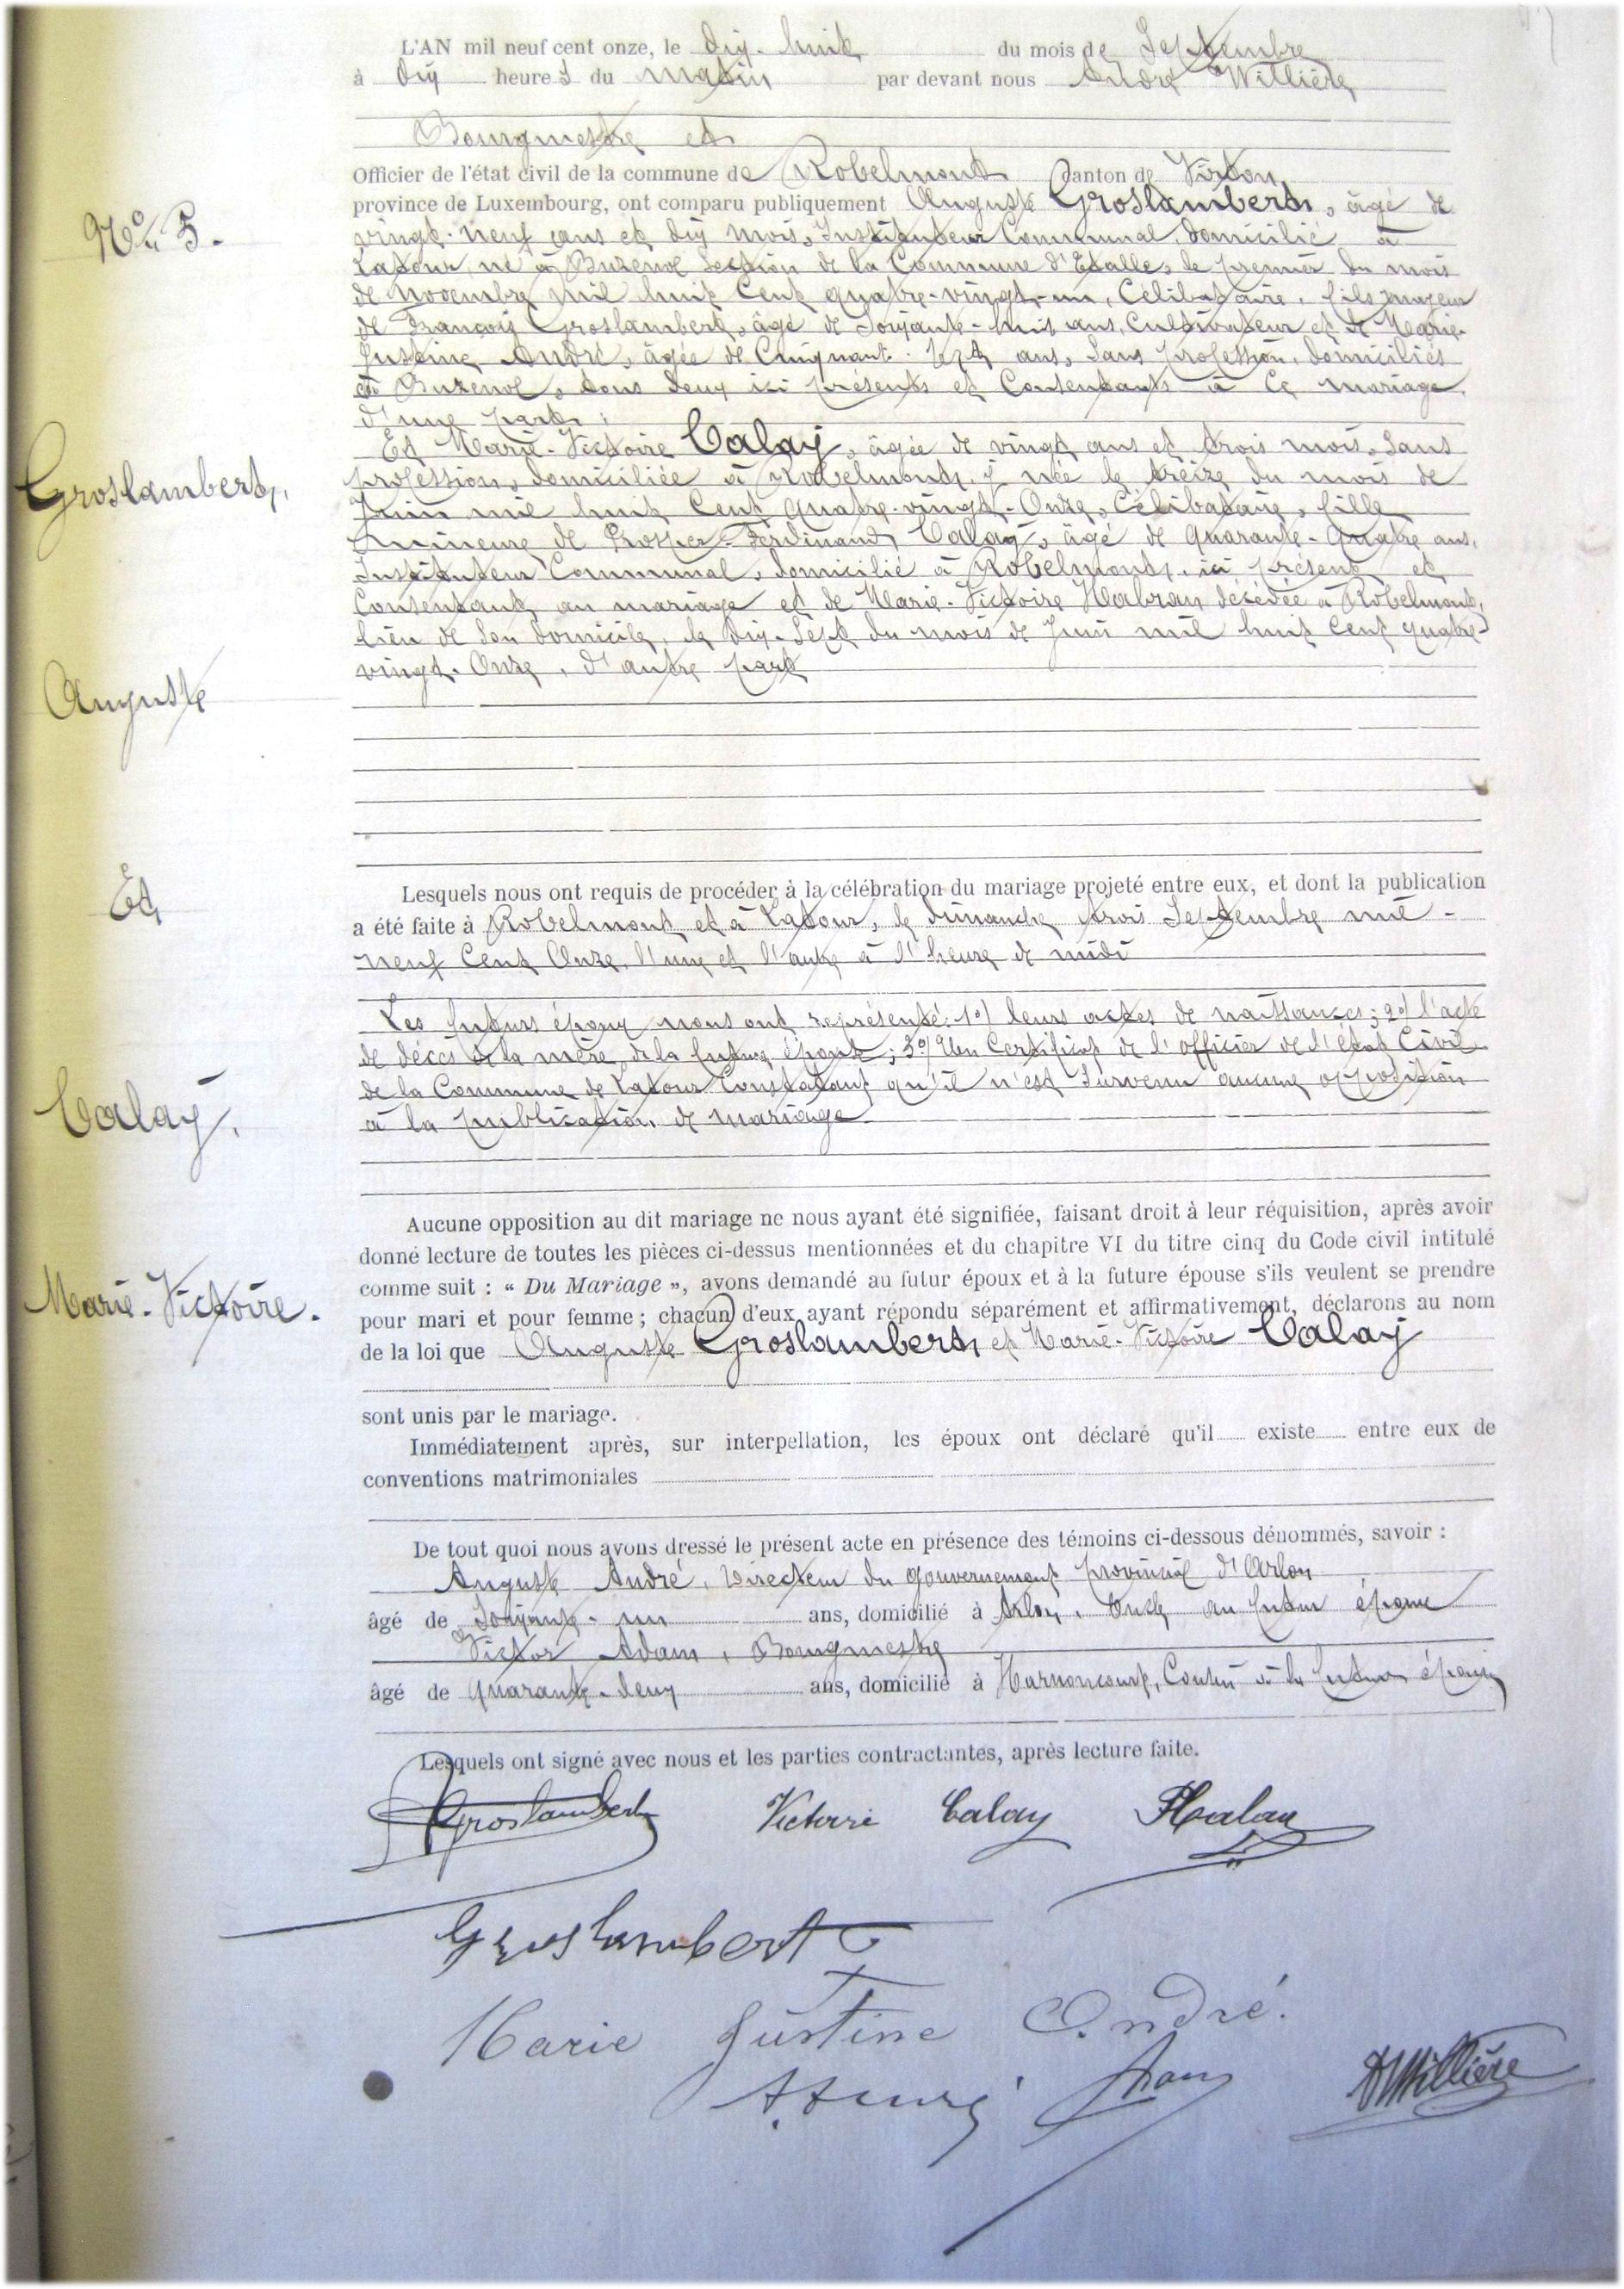 L'AN mil neuf cent onze, le dix-huit du mois de Septembre
à dix heures du matin par devant nous André Willière
Bourgmestre et
Officier de l'état civil de la commune de Robelmont Canton de Virton,
province de Luxembourg, ont comparu publiquement Auguste Groslambert, âgé de
N° 5.
vingt-neuf ans et dix mois, Instituteur Communal, domicilié à
Latour, né à Buzenol section de la Commune d'Etalle, le premier du mois
de novembre mil huit cent quatre-vingt-un, Célibataire, fils majeur
de François Groslambert, âgé de soixante-huit ans, Cultivateur et de Marie-
Justine André, âgée de Cinquante-sept ans, sans profession, domiciliés
à Buzenol, tous deux ici présents et Consentants à ce mariage
d'une part;
Et Marie-Victoire Calay, âgée de vingt ans et trois mois, sans
Groslambert,
profession, domiciliée à Robelmont, y née le treize du mois de
Juin mil huit cent quatre-vingt-Onze, Célibataire, fille
mineure de Prosper-Ferdinand Calay, âgé de quarante-quatre ans,
Instituteur Communal, domicilié à Robelmont, ici présent et
Consentant au mariage et de Marie-Victoire Habran décédée à Robelmont,
lieu de son domicile, le dix-sept du mois de Juin mil huit cent quatre-
vingt-Onze, d'autre part
Auguste
Et
Lesquels nous ont requis de procéder à la célébration du mariage projeté entre eux, et dont la publication
a été faite à Robelmont et à Latour, le dimanche trois Septembre mil-
neuf Cent Onze, l'une et l'autre à l'heure de midi
Les futurs époux nous ont représenté: 1°/ leurs actes de naissances; 2°/ l'acte
de décès de la mère de la future épouse; 3°/ Un Certificat de l'officier de l'état Civil
de la Commune de Latour Constatant qu'il n'est survenu aucune opposition
à la publication de mariage.
Calay,
Aucune opposition au dit mariage ne nous ayant été signifiée, faisant droit à leur réquisition, après avoir
donné lecture de toutes les pièces ci-dessus mentionnées et du chapitre VI du titre cinq du Code civil intitulé
comme suit : « Du Mariage », avons demandé au futur époux et à la future épouse s'ils veulent se prendre
Marie-Victoire.
pour mari et pour femme ; chacun d'eux ayant répondu séparément et affirmativement, déclarons au nom
de la loi que Auguste Groslambert et Marie-Victoire Calay
sont unis par le mariage.
Immédiatement après, sur interpellation, les époux ont déclaré qu'il existe entre eux de
conventions matrimoniales
De tout quoi nous avons dressé le présent acte en présence des témoins ci-dessous dénommés, savoir :
Auguste André, Directeur du gouvernement provincial d'Arlon
âgé de soixante-un ans, domicilié à Arlon, Oncle au futur époux
Victor Adam, Bourgmestre
âgé de quarante-deux ans, domicilié à Harnoncourt, Cousin à la future épouse
Lesquels ont signé avec nous et les parties contractantes, après lecture faite.
Groslambert Victoire Calay
Groslambert
Marie Justine André.
AWillière